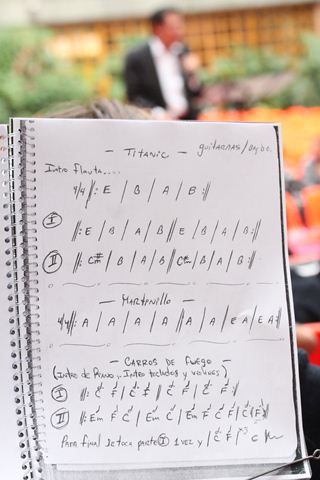 — TITANIC — guitarras/
Intro flauta....
4/4 ||: E | B | A | B :||
Ⓘ
||: E | B | A | B || E | B | A | B :||
Ⓘⓘ ||: C#m | B | A | B || C#m | B | A | B :||
— MARTINILLO —
4/4 ||: A | A | A | A || A | A | E A | E A :||
— CARROS DE FUEGO —
(Intro de Piano y Intro teclados y voces)
Ⓘ ||: C F | C F | C F | C F :||
II ||: Em C | Em C | Em F C F | C (F) :||
Para final se toca parte Ⓘ 1 vez y | C F | x3 C